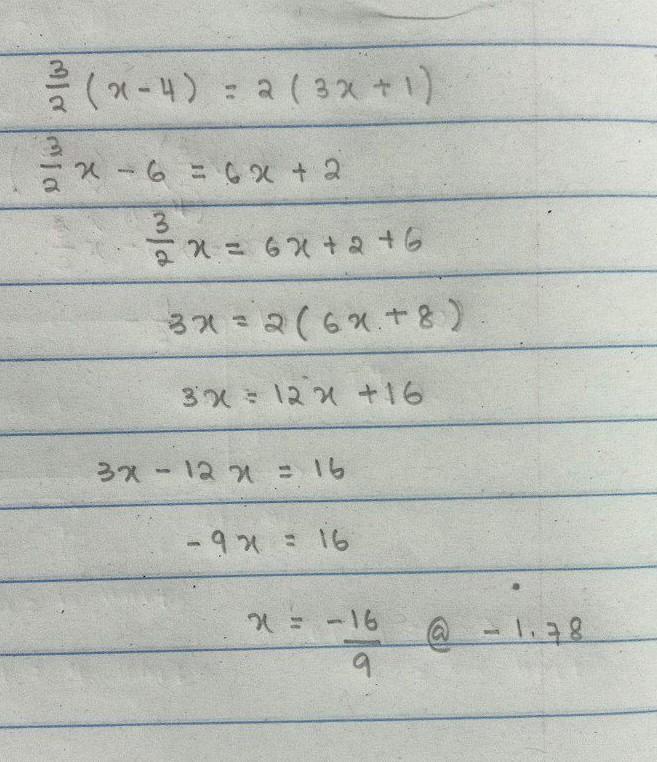 3/2 (x - 4) = 2 ( 3x + 1)
3/2 x - 6 = 6x + 2
3/2 x = 6x + 2 + 6
3x = 2 ( 6x + 8 )
3x = 12x + 16
3x - 12x = 16
-9x = 16
x = -16/9 @ -1.78